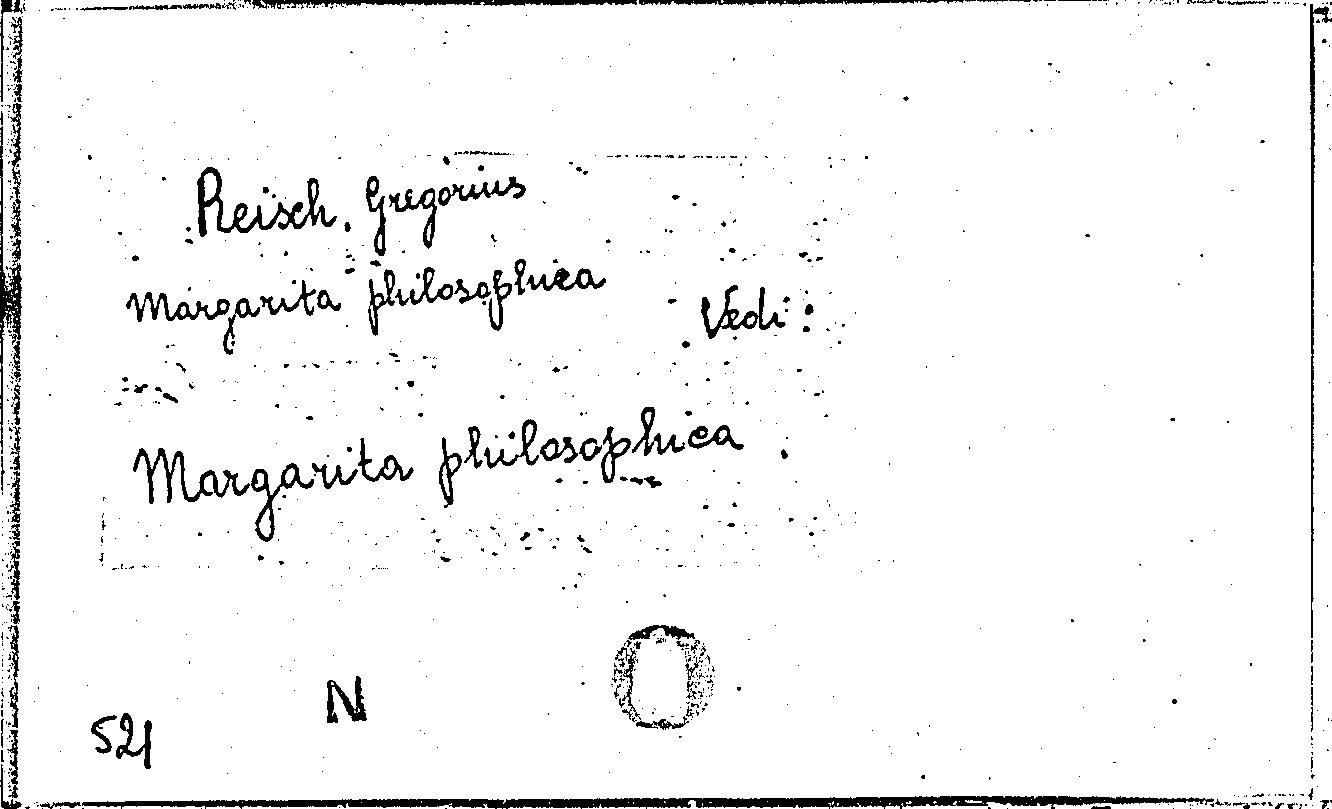 Reisch, Gregorius
Margarita philosophica
Vedi:
Margarita philosophica
N
521